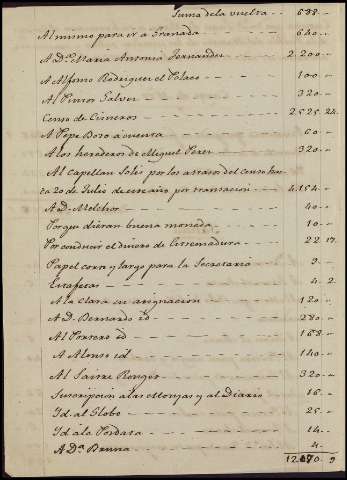 Suma de la vuelta - - 688 -
Al mismo para ir a Granada - - 640 - -
A Dª Maria Antonia Fernandez - - 2,200 - -
A Alfonso Rodriguez el Polaco - - 100 - -
Al Pintor - - 320 - -
Censo de Cisneros - - 2525.24
A Pepe Bozo a cuenta - - 60 - -
A los herederos de Miguel Perez - - 320 - -
Al capellan Solis por los atrasos del censo has-
ta 20 de Julio de este año por transacion - - 4,154 - -
A D. Melchor - - 40 - -
Porque dieran buena moneda - - 10 - -
Por conducir el dinero de Estremadura - - 22.17
Papel corto y largo para la Secretaria - - 9 - -
Estafetas - - 4.2
A la Clara su asignacion - - 120 - -
A D. Bernardo id - - 280 - -
Al Portero id - - 168 - -
A Alonso id - - 140 - -
Al Sastre - - 320 - -
Suscripcion a las Monjas y al Diario - - 16 - -
Id. al Globo - - 25 - -
Id. a la - - 14 - -
A Dª Bruna - - 4 - -
12170 9